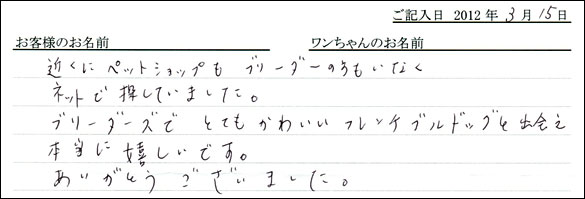 ご記入日 2012 年 3 月 15 日
お客様のお名前 ワンちゃんのお名前
近くにペットショップも ブリーダーの方もいなく
ネットで探していました。
ブリーダーズで とてもかわいい フレンチブルドッグと出会え
本当に嬉しいです。
ありがとうございました。